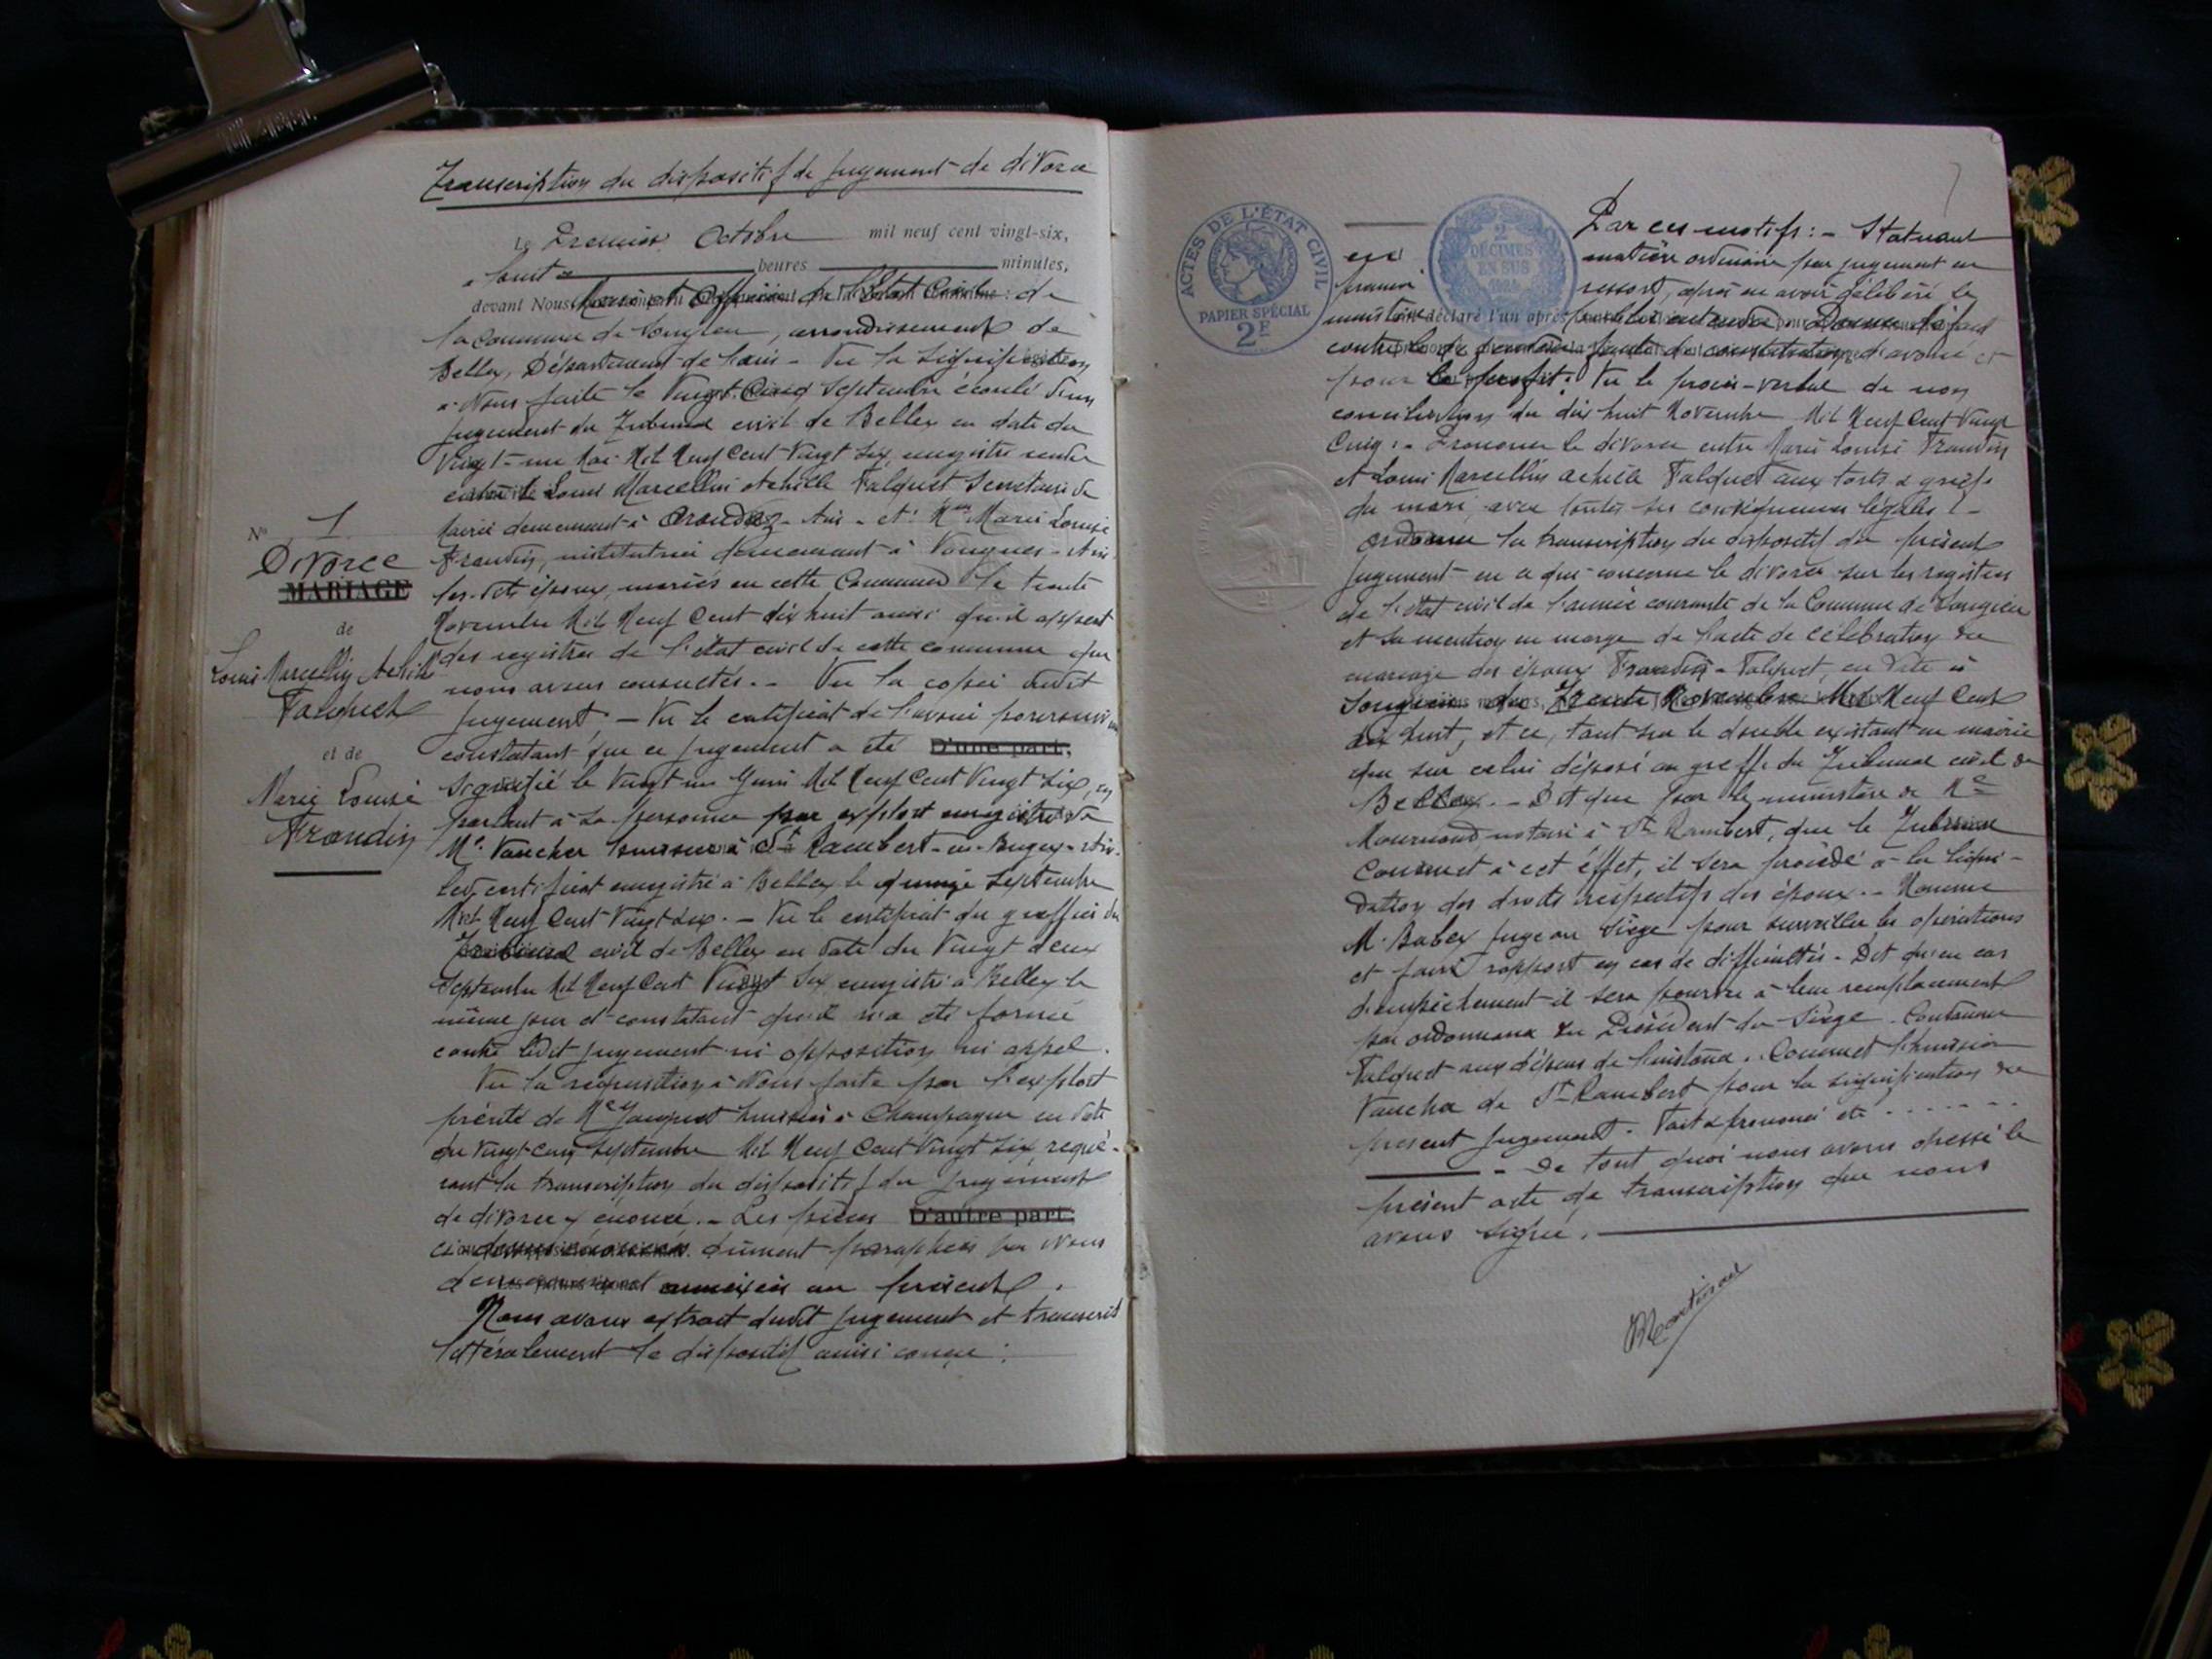 Transcription du dispositif de jugement de divorce
Le Premier Octobre mil neuf cent vingt-six,
à huit heures minutes,
devant Nous Maire et Officier de l'Etat Civil de
la Commune de Songieu, arrondissement de
Belley, Département de l'Ain - Vu la signification
à Nous faite le Vingt Cinq Septembre écoulé d'un
jugement du Tribunal civil de Belley en date du
Vingt-un Mai Mil Neuf Cent Vingt Six, enregistré rendu
entre Louis Marcellin Achille Falquet Secrétaire de
Mairie demeurant à - Ain - et Mme Marie Louise
Frandin, institutrice demeurant à Vongnes - Ain
les dits époux, mariés en cette Commune le trente
Novembre Mil Neuf Cent dix huit ainsi qu'il appert
des registres de l'état civil de cette commune que
nous avons consultés. - Vu la copie dudit
jugement - Vu le certificat de l'avoué poursuivant
constatant que ce jugement a été D'une part,
signifié le Vingt un Juin Mil Neuf Cent Vingt Six, en
parlant à sa personne par exploit enregistré de
Me Vaucher huissier à St Rambert-en-Bugey - Ain.
Led. certificat enregistré à Belley le quinze Septembre
Mil Neuf Cent Vingt Six. - Vu le certificat du greffier du
Tribunal civil de Belley en date du Vingt deux
Septembre Mil Neuf Cent Vingt Six enregistré à Belley le
même jour et constatant qu'il n'a été formé
contre ledit jugement ni opposition, ni appel.
Vu la réquisition à Nous faite par l'exploit
précité de Me Janguet huissier à Champagne en date
du Vingt-cinq Septembre Mil Neuf Cent Vingt Six, requé-
rant la transcription du dispositif du jugement
de divorce y énoncé. - Les pièces D'autre part,
ci-dessus énoncées dûment paraphées par Nous
demeureront annexées au présent.
Nous avons extrait dudit jugement et transcrit
littéralement le dispositif ainsi conçu :
No 1
Divorce
MARIAGE
de
Louis Marcellin Achille
Falquet
et de
Marie Louise
Frandin
ACTES DE L'ÉTAT CIVIL
PAPIER SPÉCIAL
2F
2
DÉCIMES
EN SUS
1924
Par ces motifs : - Statuant
en matière ordinaire par jugement en
premier ressort, après en avoir délibéré le
ministère public entendu. - Donne défaut
contre le défendeur faute de constitution d'avoué et
pour le profit : Vu le procès-verbal de non
conciliation du dix huit Novembre Mil Neuf Cent Vingt
Cinq : - Prononce le divorce entre Marie Louise Frandin
et Louis Marcellin Achille Falquet aux torts & griefs
du mari, avec toutes ses conséquences légales : -
Ordonne la transcription du dispositif du présent
jugement en ce qui concerne le divorce sur les registres
de l'état civil de l'année courante de la Commune de Songieu
et sa mention en marge de l'acte de célébration du
mariage des époux Frandin - Falquet, en date à
Songieu du Trente Novembre Mil Neuf Cent
dix huit, et ce, tant sur le double existant en mairie
que sur celui déposé au greffe du Tribunal civil de
Belley. - Dit que par le ministère de Me
notaire à St Rambert, que le Tribunal
Commet à cet effet, il sera procédé à la liqui-
dation des droits respectifs des époux. - Nomme
M. Babey juge au siège pour surveiller les opérations
et faire rapport en cas de difficultés. - Dit qu'en cas
d'empêchement il sera pourvu à leur remplacement
par ordonnance du Président du Siège. Condamne
Falquet aux dépens de l'instance. Commet l'huissier
Vaucher de St Rambert pour la signification du
présent jugement. Fait & prononcé etc . . . . . . .
- De tout quoi nous avons dressé le
présent acte de transcription que nous
avons signé.